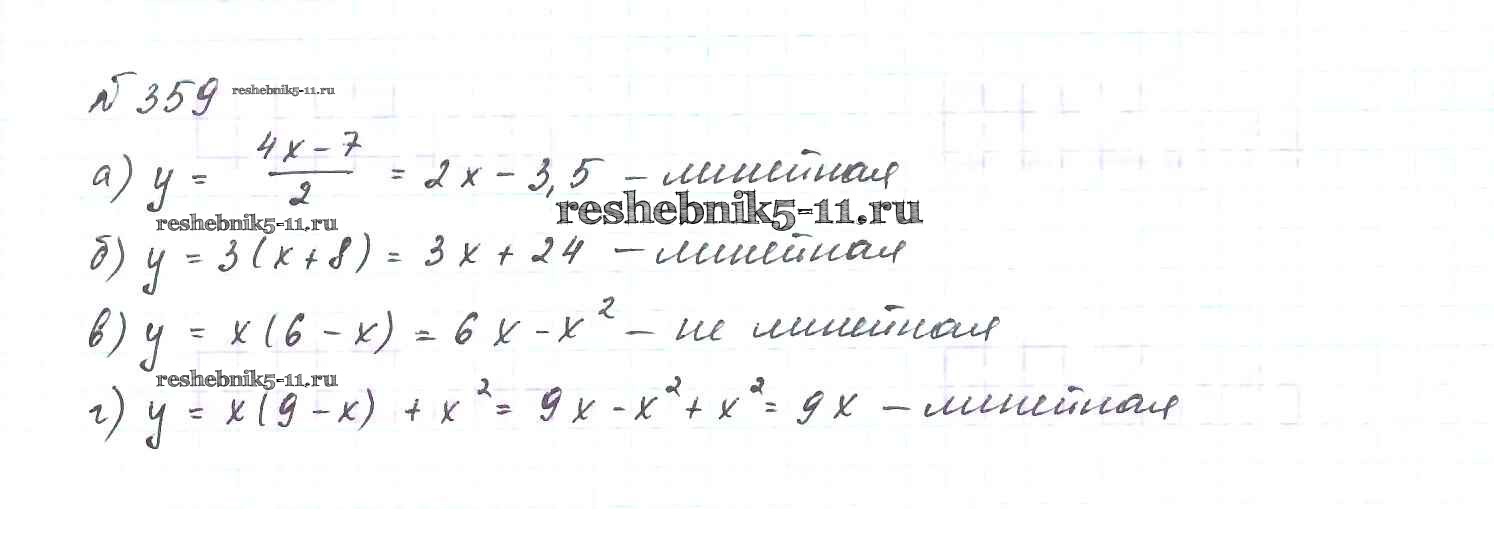 № 359 reshebnik5-11.ru
а) y = (4x - 7)/2 = 2x - 3,5 - линейная
reshebnik5-11.ru reshebnik5-11.ru
б) y = 3(x + 8) = 3x + 24 - линейная
в) y = x(6 - x) = 6x - x² - не линейная
reshebnik5-11.ru
г) y = x(9 - x) + x² = 9x - x² + x² = 9x - линейная